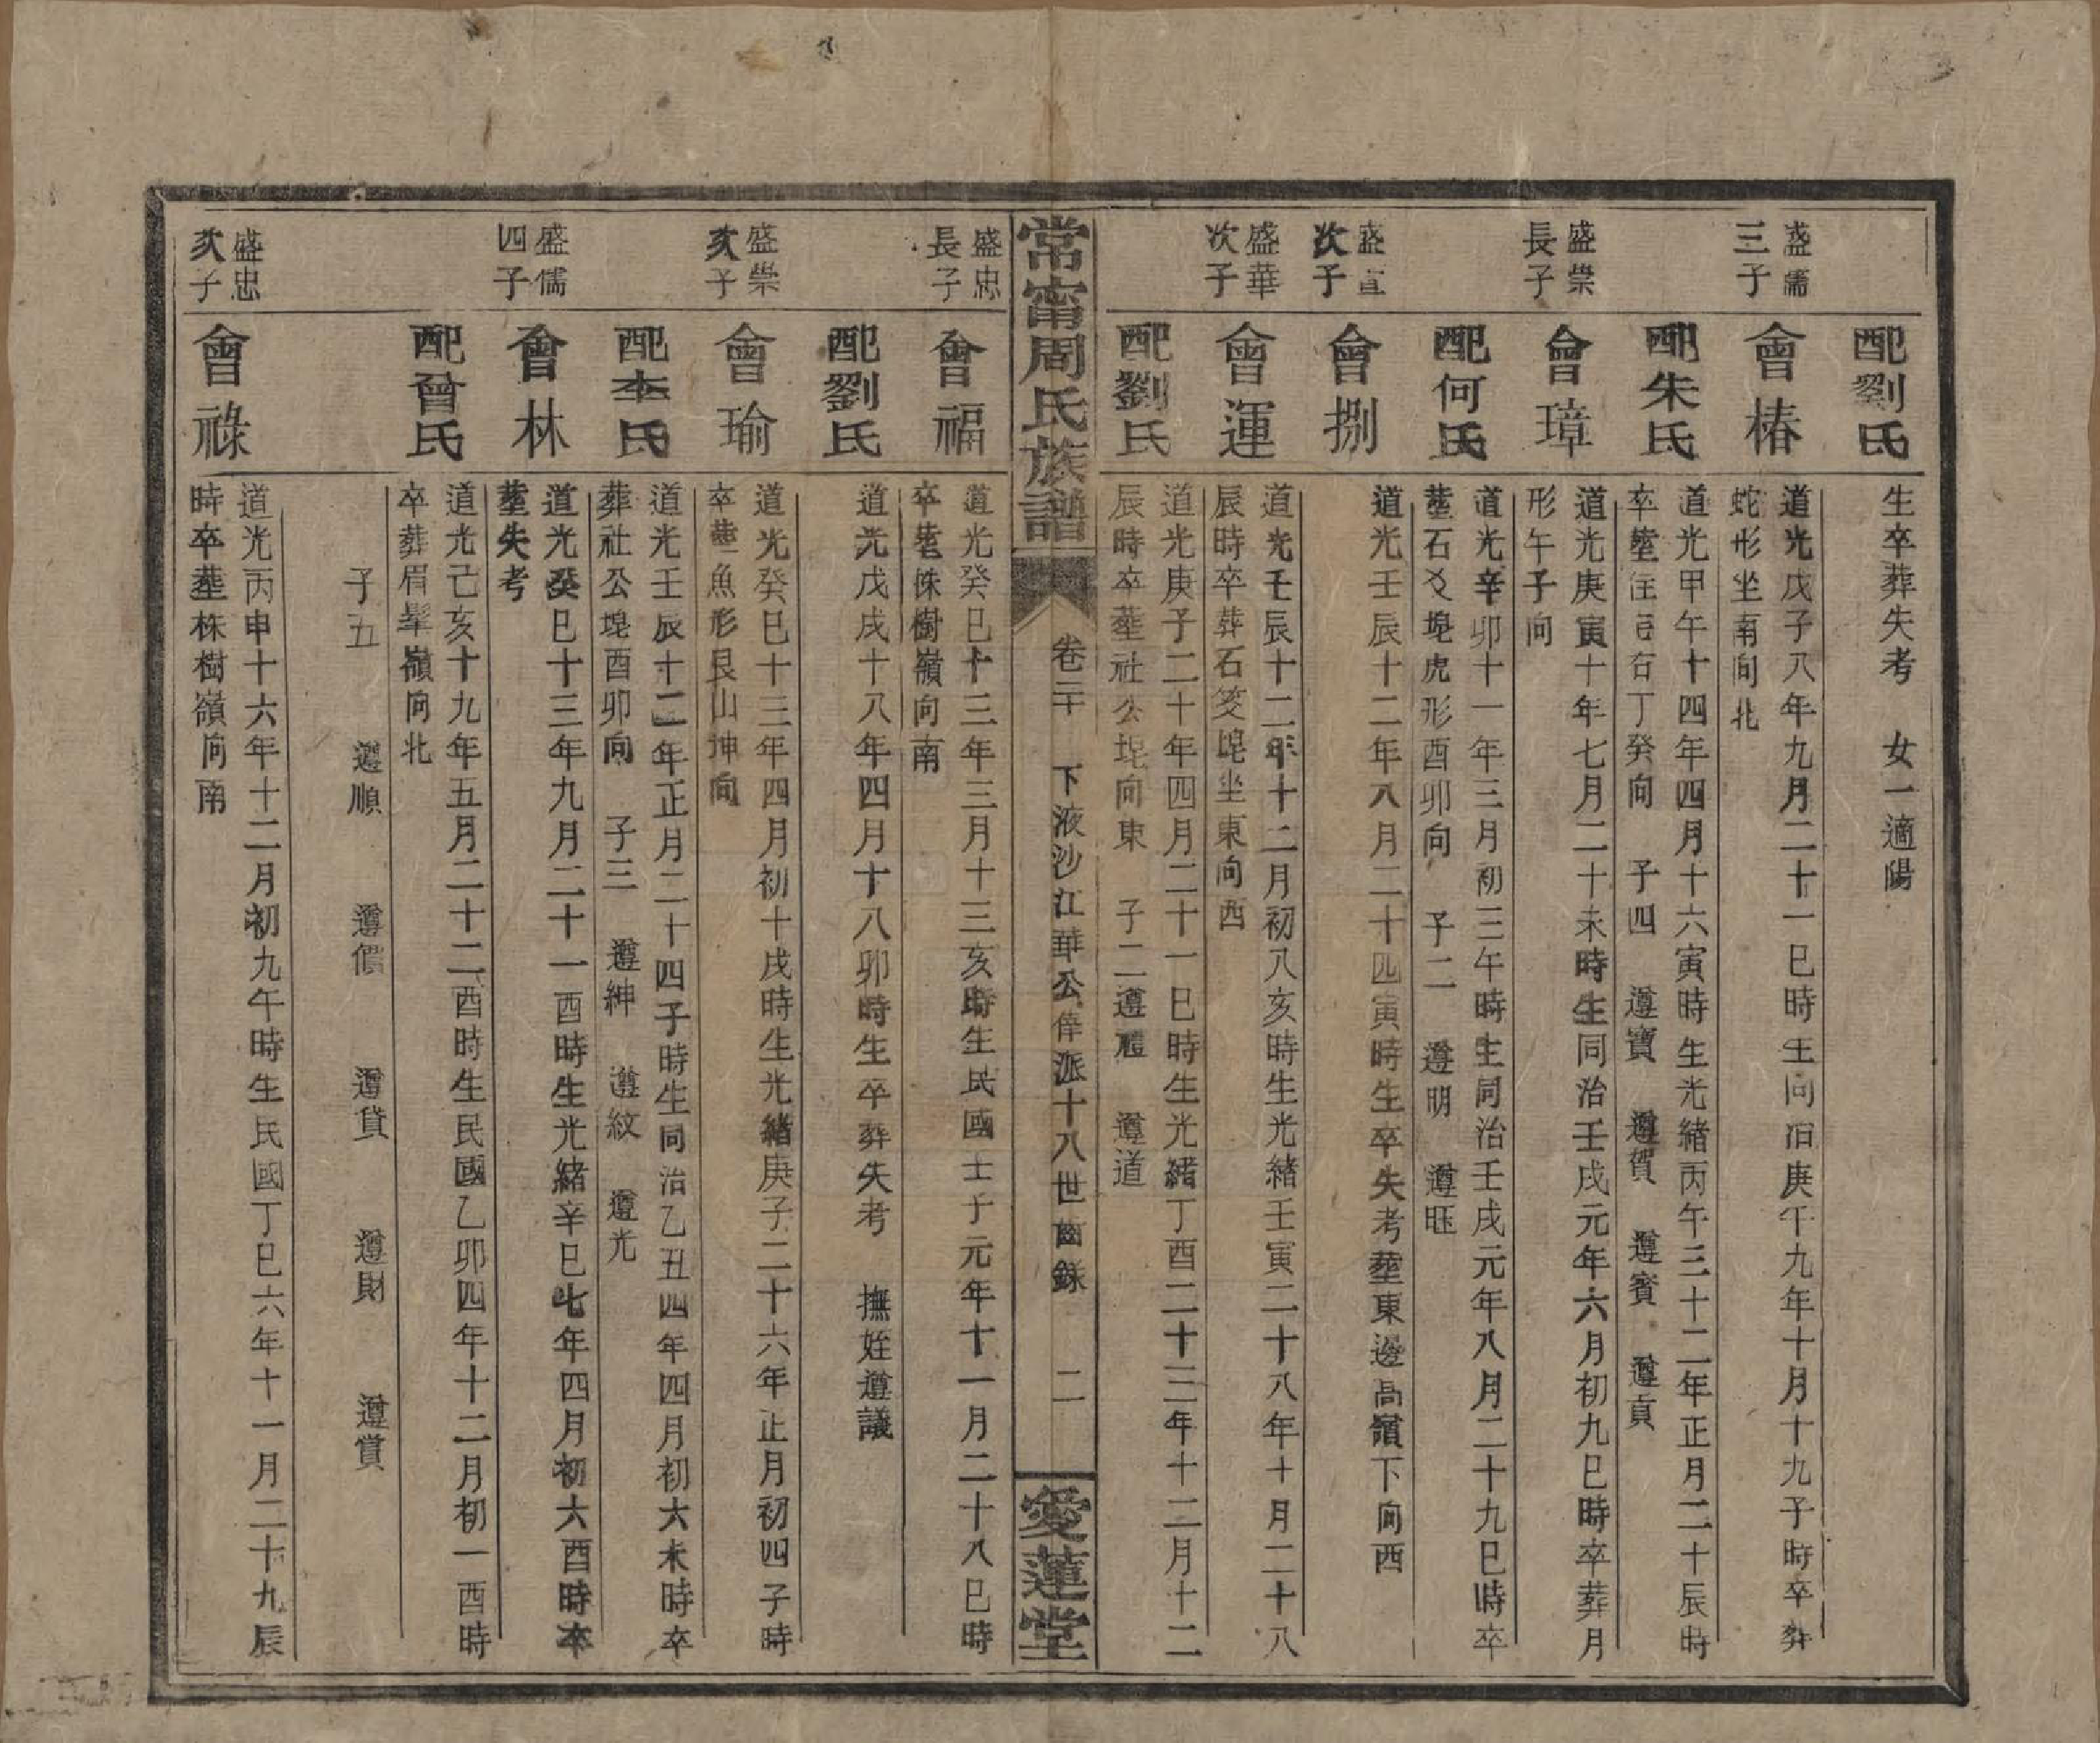 配劉氏
生卒葬失考 女一適陽
盛儒
三子
會椿
道光戊子八年九月二十一巳時生同治庚午九年十月十九子時卒葬
蛇形坐南向北
配朱氏
道光甲午十四年四月十六寅時生光緒丙午三十二年正月二十辰時
卒塟 右丁癸向 子四 遵寶 遵賀 遵賓 遵貢
盛崇
長子
會璋
道光庚寅十年七月二十未時生同治壬戌元年六月初九巳時卒葬月
形午子向
配何氏
道光辛卯十一年三月初三午時生同治壬戌元年八月二十九巳時卒
塟石 塊虎形酉卯向 子二 遵明 遵旺
盛宣
次子
會捌
道光壬辰十二年八月二十四寅時生卒失考塟東邊高嶺下向西
盛華
次子
會運
道光壬辰十二年十二月初八亥時生光緒壬寅二十八年十月二十八
辰時卒葬石筊塊坐東向西
配劉氏
道光庚子二十年四月二十一巳時生光緒丁酉二十三年十二月十二
辰時卒塟社公塊向東 子二 遵禮 遵道
常甯周氏族譜
卷二十 下液沙江華公倖派十八世齒錄 二
愛蓮堂
盛忠
長子
會福
道光癸巳十三年三月十三亥時生民國壬子元年十一月二十八巳時
卒塟株樹嶺向南
配劉氏
道光戊戌十八年四月十八卯時生卒葬失考 撫姪遵議
盛崇
次子
會瑜
道光癸巳十三年四月初十戌時生光緒庚子二十六年正月初四子時
卒塟魚形艮山坤向
配李氏
道光壬辰十二年正月二十四子時生同治乙丑四年四月初六未時卒
葬社公塊酉卯向 子三 遵紳 遵紋 遵光
盛儒
四子
會林
道光癸巳十三年九月二十一酉時生光緒辛巳七年四月初六酉時卒
塟失考
配曾氏
道光己亥十九年五月二十二酉時生民國乙卯四年十二月初一酉時
卒葬眉髼嶺向北
子五 遵順 遵償 遵貸 遵財 遵賞
盛忠
次子
會祿
道光丙申十六年十二月初九午時生民國丁巳六年十一月二十九辰
時卒塟株樹嶺向南